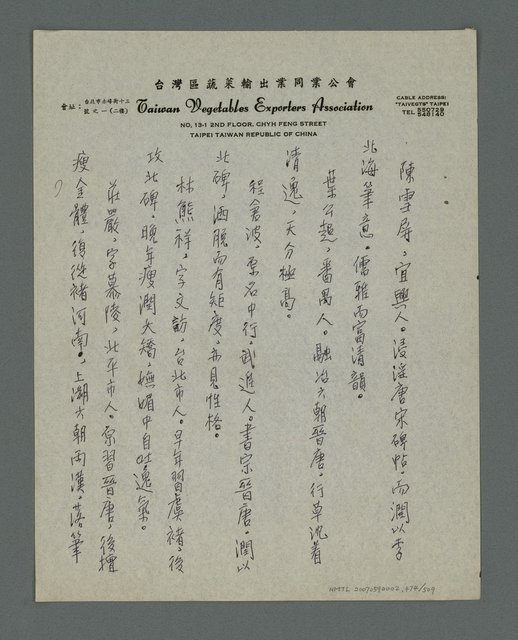 台灣區蔬菜輸出業同業公會
會址：台北市赤峰街十三號之一(二樓)
Taiwan Vegetables Exporters Association
NO, 13-1 2ND FLOOR, CHYH FENG STREET
TAIPEI TAIWAN REPUBLIC OF CHINA
CABLE ADDRESS:
"TAIVEGTS" TAIPEI
TEL 550729
548140
陳雪屏，宜興人。浸淫唐宋碑帖，而潤以李
北海筆意。儒雅而富清韻。
葉公超，番禺人。融冶六朝晉唐，行草沈着
清逸，天分極高。
程滄波，原名中行，武進人。書宗晉唐，潤以
北碑，洒脫而有矩度，亦見性格。
林熊祥，字文訪，台北市人。早年習虞褚，後
攻北碑，晚年瘦潤大矯，嫵媚中自吐逸氣。
莊嚴，字慕陵，北平市人。原習晉唐，後擅
瘦金體，復從褚河南，上溯六朝兩漢，落筆
NMTL 20070590002, 474/509